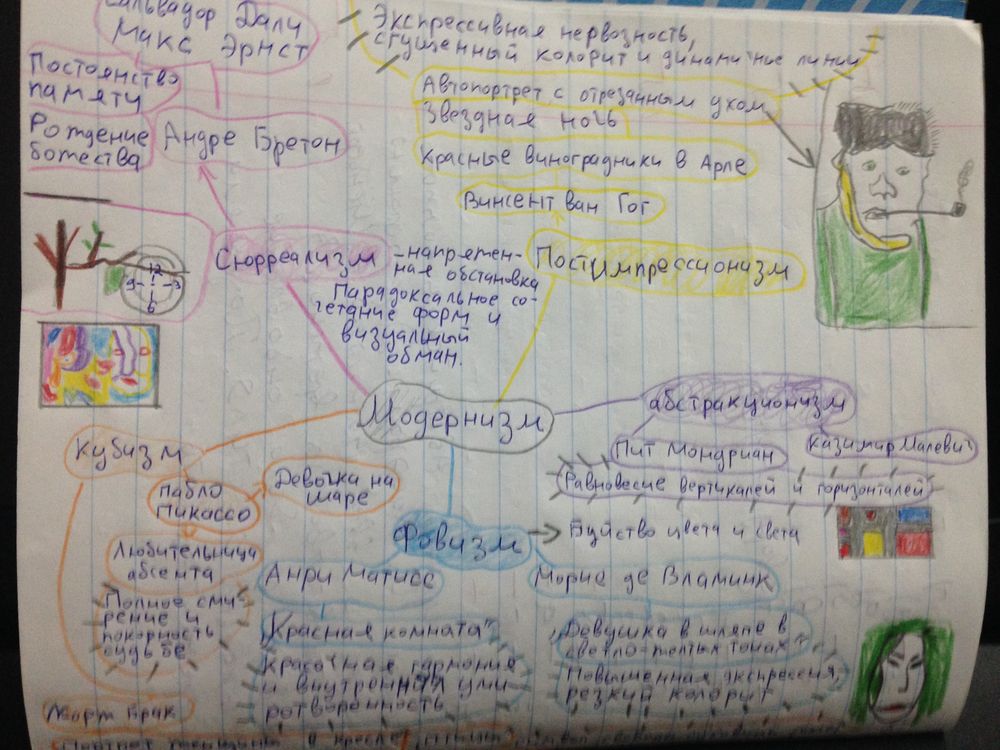 Сальвадор Дали
Макс Эрнст
Постоянство
памяти
Рождение
божества
Андре Бретон
Экспрессивная нервозность,
сгущенный колорит и динамичные линии
Автопортрет с отрезанным ухом
Звездная ночь
Красные виноградники в Арле
Винсент ван Гог
Сюрреализм
-напряжен-
ная обстановка
Парадоксальное со-
четание форм и
визуальный
обман.
Постимпрессионизм
12
9
3
6
Модернизм
абстракционизм
Пит Мондриан
Казимир Малевич
Равновесие вертикалей и горизонталей
Кубизм
Пабло
Пикассо
Девочка на
шаре
Любительница
абсента
Полное сми-
рение и
покорность
судьбе
Жорж Брак
Фовизм
Буйство цвета и света
Анри Матисс
"Красная комната"
Красочная гармония
и внутренняя уми
ротворенность
Морис де Вламинк
"Девушка в шляпе в
светло-желтых тонах"
Повышенная экспрессия,
резкий колорит
в кресле